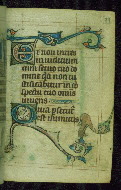 Et non intres
in iudicium
cum seruo tuo do
mine quia non iu
stificabitur in co
spectu tuo omnis
uiuens
Quia persecut
est inimicus